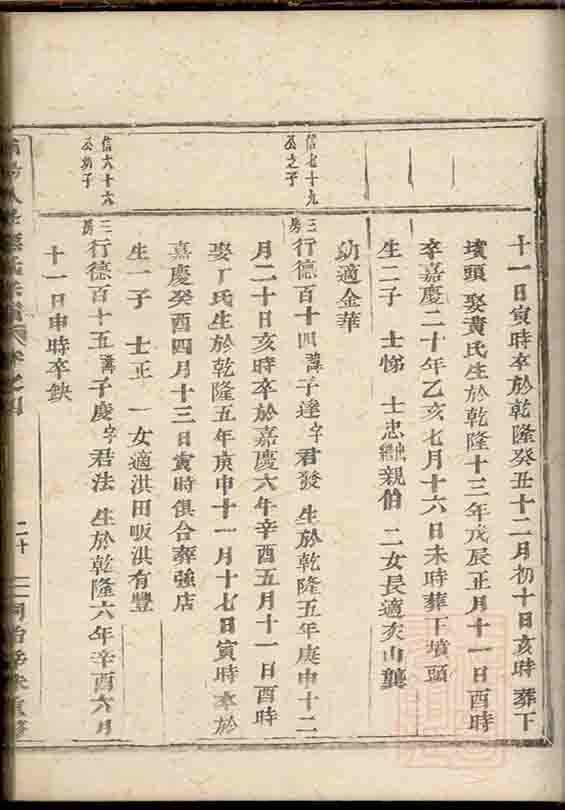 十一日寅時卒於乾隆癸丑十二月初十日亥時葬下
墳頭 娶黃氏生於乾隆十三年戊辰正月十一日酉時
卒嘉慶二十年乙亥七月十六日未時葬下墳頭
生二子 士悌 士忠出繼親伯 二女長適亥山龔
幼適金華
信七十九
公之子
三房
行德百十四諱子達字君發 生於乾隆五年庚申十二
月二十日亥時卒於嘉慶六年辛酉五月十一日酉時
娶丁氏生於乾隆五年庚申十一月十七日寅時卒於
嘉慶癸酉四月十三日寅時俱合葬強店
生一子 士正 一女適洪田畈洪有豐
信六十六
公幼子
三房
行德百十五諱子慶字君法 生於乾隆六年辛酉六月
十一日申時卒缺
氏宗譜 卷之四 二十 同治辛未重修